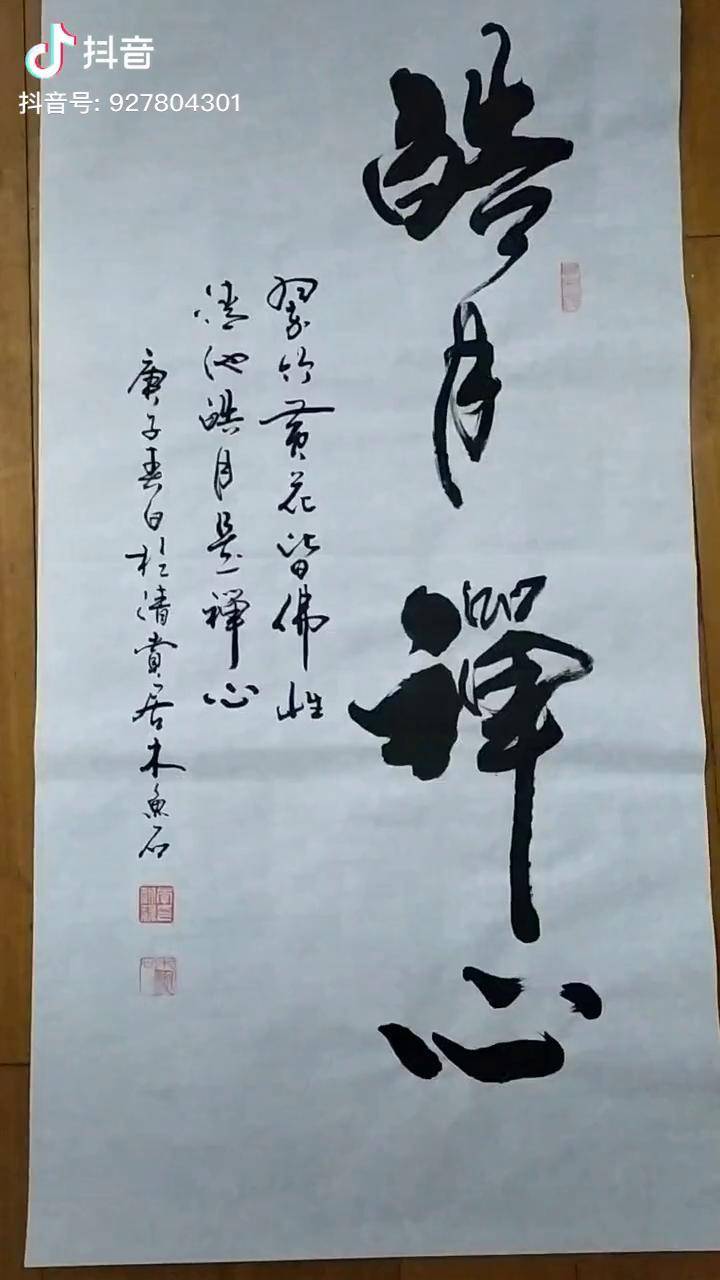 抖音
抖音号: 927804301
皓月禅心
翠竹黄花皆佛性
清池皓月是禪心
庚子春日於清賞居木魚石